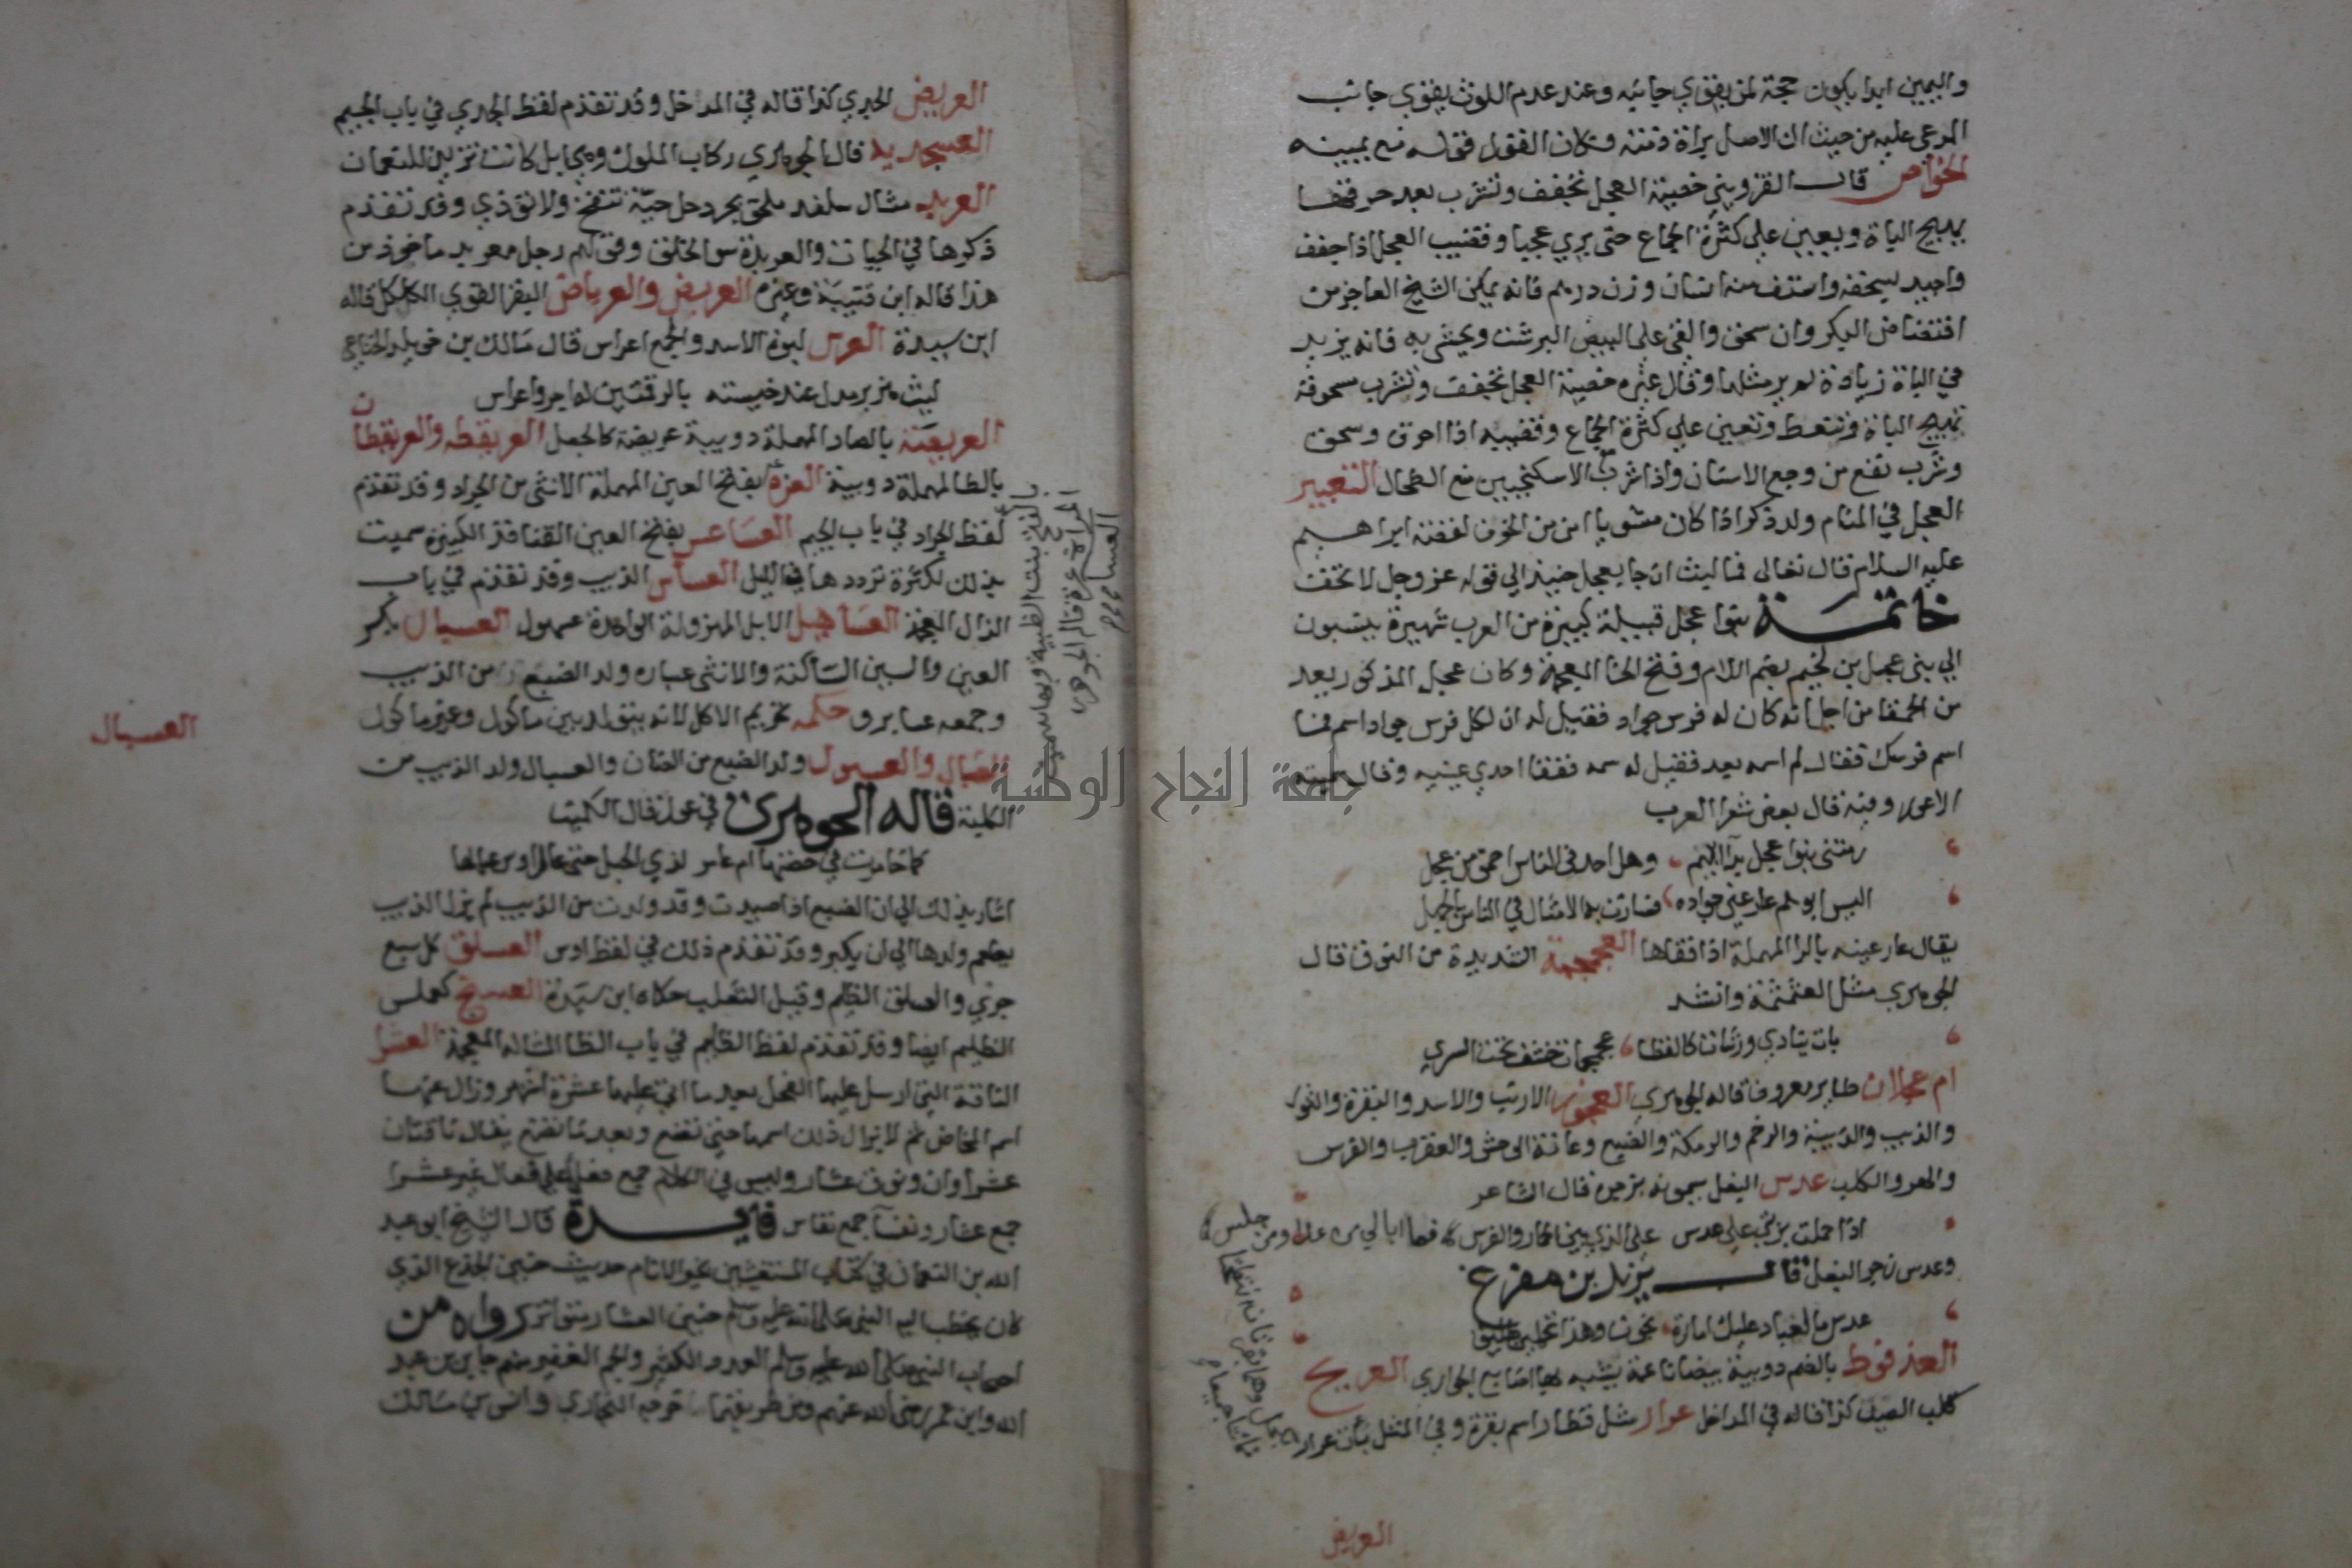 واليمين ابدا يكون حجة لمن يقوي جانبه وعند عدم اللوث يقوي جانب
المدعى عليه من حيث ان الاصل براة ذمته وكان القول قوله مع يمينه
الخواص قال القزويني خصية العجل تجفف وتشرب بعد حرقها
يهيج الباة ويعين على كثرة الجماع حتى يري عجبا وقضيب العجل اذا جفف
واجيد سحقه واستف منه انسان وزن درهم فانه يمكن الشيخ العاجز من
افتضاض البكر وان سحق والقي على البيض البرشت وتحشي به فانه يزيد
في الباة زيادة لم ير مثلها وقال غيره خصية العجل تجفف وتشرب مسحوقة
تهيج الباة وتنعظ وتعين علي كثرة الجماع وقضيبه اذا احرق وسحق
وشرب نفع من وجع الاسنان واذا شرب الاسكنجبين نفع الطحال التعبير
العجل في المنام ولد ذكر اذا كان مشويا امن من الخوف لقصة ابراهيم
عليه السلام قال تعالى فما لبث ان جا بعجل حنيذ الي قوله عز وجل لا تخف
خاتمة بنوا عجل قبيلة كبيرة من العرب شهيرة ينسبون
الي بني عجل بن لجيم بضم اللام وفتح الجيم المعجمة وكان عجل المذكور يعد
من الحمقا من اجل انه كان له فرس جواد فقيل له ان لكل فرس جواد اسم فما
اسم فرسك فقال لم اسمه بعد فقيل له سمه ففقا احدي عينيه وقال سميته
الاعور وفيه قال بعض شعرا العرب
رمتني بنوا عجل بدا ابيهم وهل احد في الناس احمق من عجل
اليس ابوهم عار عين جواده فصارت به الامثال في الناس بالجهل
يقال عار عينه بالرا المهملة اذا فقاها العجمجمة الشديدة من النوق قال
الجوهري مثل العثمثمة وانشد
بات يباري ورشات كالقطا عجمجمات خشف تحت السري
ام عجلان طاير معروف قاله الجوهري العجوز الارنب والاسد والبقرة والثور
والذيب والذيبة والرخم والرمكة والضبع وعانة الوحش والعقرب والفرس
والكلب عدس البغل سموه بزجره قال الشاعر
اذا حملت بزتي علي عدس على الذي بين الحمار والفرس فما ابالي من عدا ومن جلس
وعدس زجر البغل قال يزيد بن مفرغ
عدس ما لعباد عليك امارة نجوت وهذا تحملين طليق
العذفوط بالضم دويبة بيضا ناعمة يشبه بها اصابع الجواري العريج
كلب الصيد كذا قاله في المداخل عرار مثل قطار اسم بقرة وفي المثل بات عرار
بكحل وهما بقرتان انتطحتا
فماتتا جميعا
العريض
العريض الجدي كذا قاله في المدخل وقد تقدم لفظ الجدي في باب الجيم
العسجدية قال الجوهري ركاب الملوك وهي ابل كانت تزين للنعمان
العربد مثال سلغد ملحق بجردحل حية تنفخ ولا توذي وقد تقدم
ذكرها في الحيات والعربدة سو الخلق وقولهم رجل معربد ماخوذ من
هذا قاله ابن قتيبة وغيره العربض والعرباض البقر القوي الكلكل قاله
ابن سيدة العرس لبوة الاسد والجمع اعراس قال مالك بن خويلد الخناعي
ليث هزبر مدل عند خيسته بالرقمتين له اجر واعراس
العريقصة بالصاد المهملة دويبة عريضة كالجعل العريقطه والعريقطان
بالطا المهملة دويبة العزة بفتح العين المهملة الانثي من الجراد وقد تقدم
لفظ الجراد في باب الجيم العساعس بفتح العين القنافذ الكبيرة سميت
بذلك لكثرة ترددها في الليل العساس الذيب وقد تقدم في باب
الذال المعجمة العساهيل الابل المهزولة الواحدة عسهول العسبار بكسر
العين والسين الساكنة والانثي عبساره ولد الضبع من الذيب
وجمعه عسابر وحكمه تحريم الاكل لانه يتولد بين ماكول وغير ماكول
العسبال والعسبول ولد الضبع من الضان والعسبال ولد الذيب من
الكلبة قاله الجوهري في عجز قال الكميت
كما خامرت في حضنها ام عامر لذي الحبل حتى عال اوس عيالها
اشار بذلك الي ان الضبع اذا صيدت وقد ولدت من الذيب لم يزل الذيب
يطعم ولدها الي ان يكبر وقد تقدم ذلك في لفظ اوس العسلق كل سبع
جري والعسلق الظليم وقيل الثعلب حكاه ابن سيدة العسنج كعملس
الظليم ايضا وقد تقدم لفظ الظليم في باب الظا المشالة المعجمة العشرا
الناقة التي ارسل عليها الفحل بعد ما اتي عليها عشرة اشهر وزال عنها
اسم المخاض ثم لا يزال ذلك اسمها حتى تضع وبعد ما تضع يقال ناقتان
عشراوان ونوق عشار وليس في الكلام جمع فعلا علي فعال غير عشرا
جمع عشار ونفسا جمع نفاس فايدة قال الشيخ ابو عبد
الله بن النعمان في كتاب المستغيثين بخير الانام حديث حنين الجذع الذي
كان يخطب اليه النبي صلى الله عليه وسلم حنين العشار متواتر رواه من
اصحاب النبي صلى الله عليه وسلم العدد الكثير والجم الغفير منهم جابر بن عبد
الله وابن عمر رضي الله عنهم ومن طريقهما خرجه البخاري وانس بن مالك
بالفتح بنت الظبية وبها سميت
المراة عزة قاله الجوهري
العسا
العسبال
جامعة النجاح الوطنية